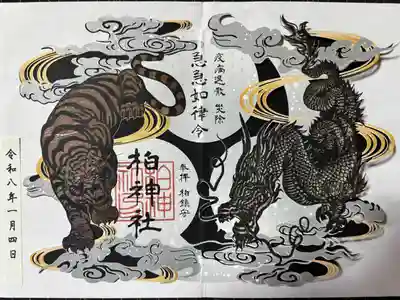 疫病退散 災除
急急如律令
参拝 柏鎮守
柏神社
令和八年一月四日